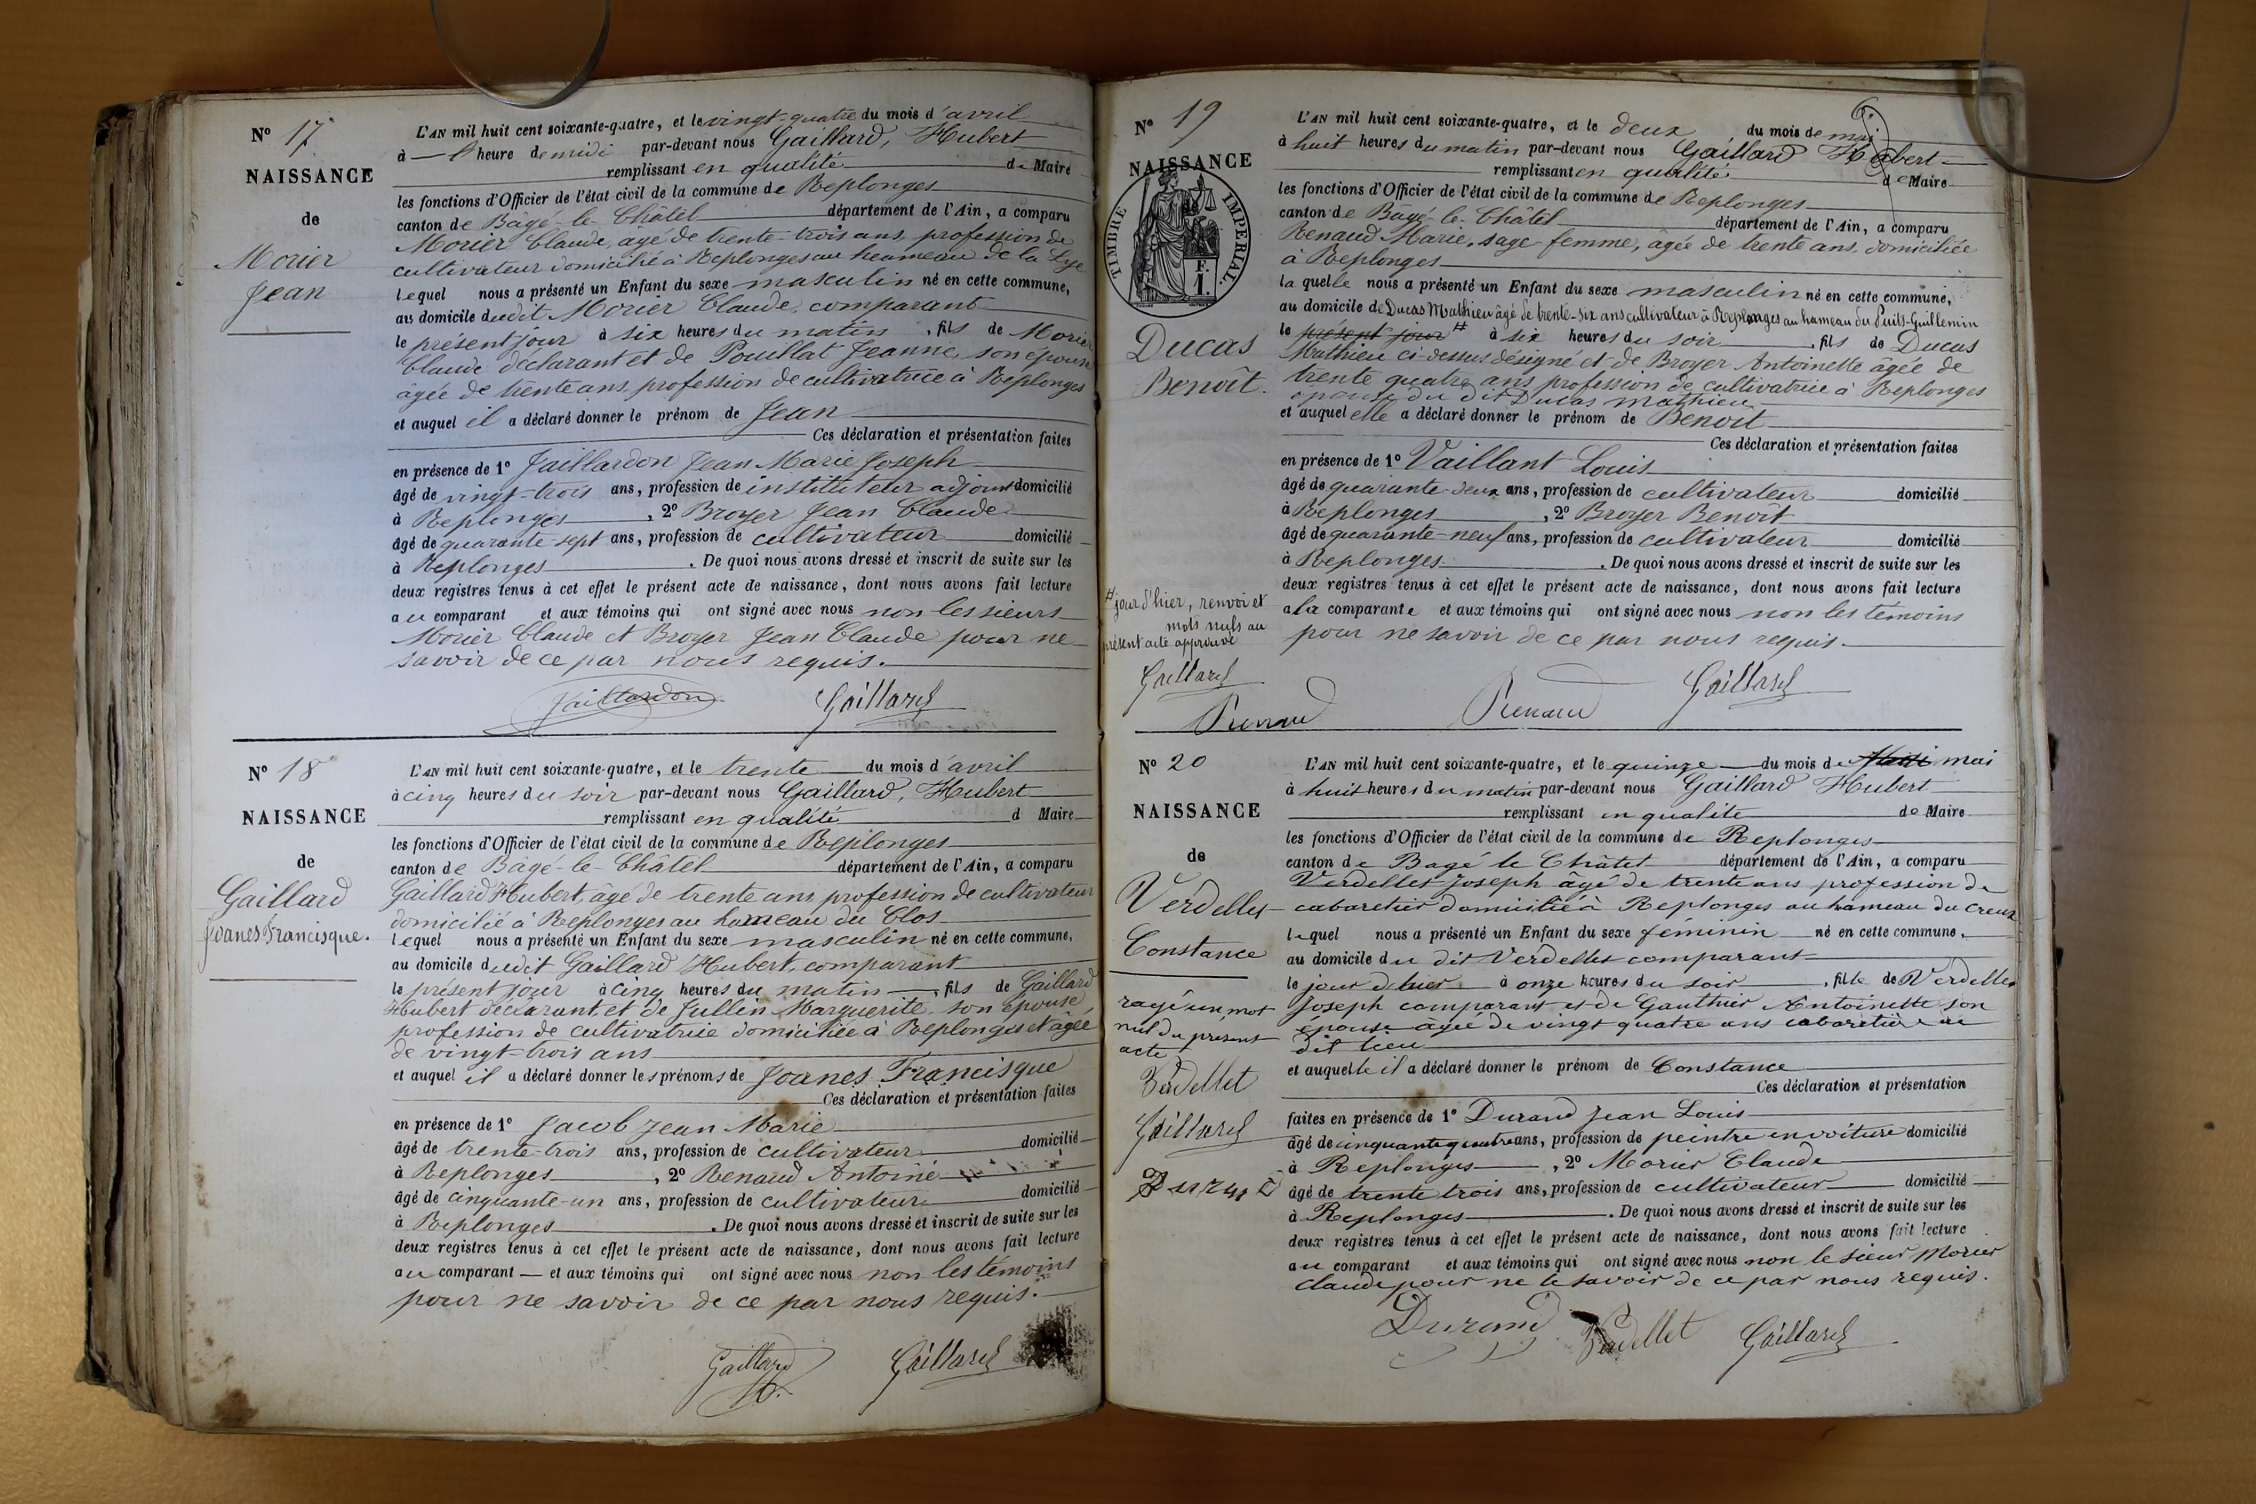 N° 17
NAISSANCE
de
Morier
Jean
L'AN mil huit cent soixante-quatre, et le vingt-quatre du mois d'avril
à — l'heure de midi par-devant nous Gaillard, Hubert
remplissant en qualité de Maire
les fonctions d'Officier de l'état civil de la commune de Replonges
canton de Bâgé-le-Châtel département de l'Ain, a comparu
Morier Claude, âgé de trente-trois ans, profession de
cultivateur domicilié à Replonges au heameau de la
lequel nous a présenté un Enfant du sexe masculin né en cette commune,
au domicile dudit Morier Claude, comparant
le présent jour à six heures du matin, fils de Morier
Claude déclarant et de Pouillat Jeanne, son épouse
âgée de trente ans, profession de cultivatrice à Replonges
et auquel il a déclaré donner le prénom de Jean
Ces déclaration et présentation faites
en présence de 1° Jaillardon Jean Marie Joseph
âgé de vingt-trois ans, profession de instituteur adjoint domicilié
à Replonges, 2° Broyer Jean Claude
âgé de quarante-sept ans, profession de cultivateur domicilié
à Replonges. De quoi nous avons dressé et inscrit de suite sur les
deux registres tenus à cet effet le présent acte de naissance, dont nous avons fait lecture
au comparant et aux témoins qui ont signé avec nous non les sieurs
Morier Claude et Broyer Jean Claude pour ne
savoir de ce par nous requis.
Jaillardon Gaillard
N° 18
NAISSANCE
de
Gaillard
Joanes Francisque.
L'AN mil huit cent soixante-quatre, et le trente du mois d'avril
à cinq heures du soir par-devant nous Gaillard, Hubert
remplissant en qualité d Maire
les fonctions d'Officier de l'état civil de la commune de Replonges
canton de Bâgé-le-Châtel département de l'Ain, a comparu
Gaillard Hubert, âgé de trente ans, profession de cultivateur
domicilié à Replonges au hameau du Clos
lequel nous a présenté un Enfant du sexe masculin né en cette commune,
au domicile dudit Gaillard Hubert, comparant
le présent jour à cinq heures du matin, fils de Gaillard
Hubert déclarant, et de Jullin Marguerite son épouse
profession de cultivatrice domiciliée à Replonges et âgée
de vingt-trois ans
et auquel il a déclaré donner les prénoms de Joanes Francisque
Ces déclaration et présentation faites
en présence de 1° Jacob Jean Marie
âgé de trente-trois ans, profession de cultivateur domicilié
à Replonges, 2° Renaud Antoine
âgé de cinquante-un ans, profession de cultivateur domicilié
à Replonges. De quoi nous avons dressé et inscrit de suite sur les
deux registres tenus à cet effet le présent acte de naissance, dont nous avons fait lecture
au comparant — et aux témoins qui ont signé avec nous non les témoins
pour ne savoir de ce par nous requis.
Gaillard H. Gaillard
6.
N° 19
NAISSANCE
TIMBRE IMPERIAL.
F.
1.
Ducas
Benoît.
L'AN mil huit cent soixante-quatre, et le deux du mois de mai
à huit heures du matin par-devant nous Gaillard Hubert
remplissant en qualité de Maire
les fonctions d'Officier de l'état civil de la commune de Replonges
canton de Bâgé-le-Châtel département de l'Ain, a comparu
Renaud Marie, sage-femme, âgée de trente ans, domiciliée
à Replonges
la quelle nous a présenté un Enfant du sexe masculin né en cette commune,
au domicile de Ducas Mathieu âgé de trente-six ans cultivateur à Replonges au hameau du Puits-Guillemin
le présent jour # à six heures du soir, fils de Ducas
Mathieu ci-dessus désigné et de Broyer Antoinette âgée de
trente quatre ans, profession de cultivatrice à Replonges
épouse du dit Ducas Mathieu
et auquel elle a déclaré donner le prénom de Benoît
Ces déclaration et présentation faites
en présence de 1° Vaillant Louis
âgé de quarante-deux ans, profession de cultivateur domicilié
à Replonges, 2° Broyer Benoît
âgé de quarante-neuf ans, profession de cultivateur domicilié
à Replonges. De quoi nous avons dressé et inscrit de suite sur les
deux registres tenus à cet effet le présent acte de naissance, dont nous avons fait lecture
à la comparante et aux témoins qui ont signé avec nous non les témoins
pour ne savoir de ce par nous requis.
# jour d'hier, renvoi et
mots nuls au
présent acte approuvé
Gaillard
Renaud Renaud Gaillard
N° 20
NAISSANCE
de
Verdellet
Constance
L'AN mil huit cent soixante-quatre, et le quinze du mois de mai
à huit heures du matin par-devant nous Gaillard Hubert
remplissant en qualité de Maire
les fonctions d'Officier de l'état civil de la commune de Replonges
canton de Bagé le Châtel département de l'Ain, a comparu
Verdellet Joseph âgé de trente ans profession de
cabaretier domicilié à Replonges au hameau du Creux
lequel nous a présenté un Enfant du sexe féminin né en cette commune,
au domicile du dit Verdellet comparant
le jour d'hier à onze heures du soir, fille de Verdellet
Joseph comparant et de Gauthier Antoinette son
épouse âgée de vingt quatre ans cabaretière au
dit lieu
et auquelle il a déclaré donner le prénom de Constance
Ces déclaration et présentation
faites en présence de 1° Durand Jean Louis
âgé de cinquante quatre ans, profession de peintre en voiture domicilié
à Replonges, 2° Morier Claude
âgé de trente trois ans, profession de cultivateur domicilié
à Replonges. De quoi nous avons dressé et inscrit de suite sur les
deux registres tenus à cet effet le présent acte de naissance, dont nous avons fait lecture
au comparant et aux témoins qui ont signé avec nous non le sieur Morier
Claude pour ne le savoir de ce par nous requis.
rayé un mot
nul du présent
acte
Verdellet
Gaillard
Durand
Durand Verdellet Gaillard